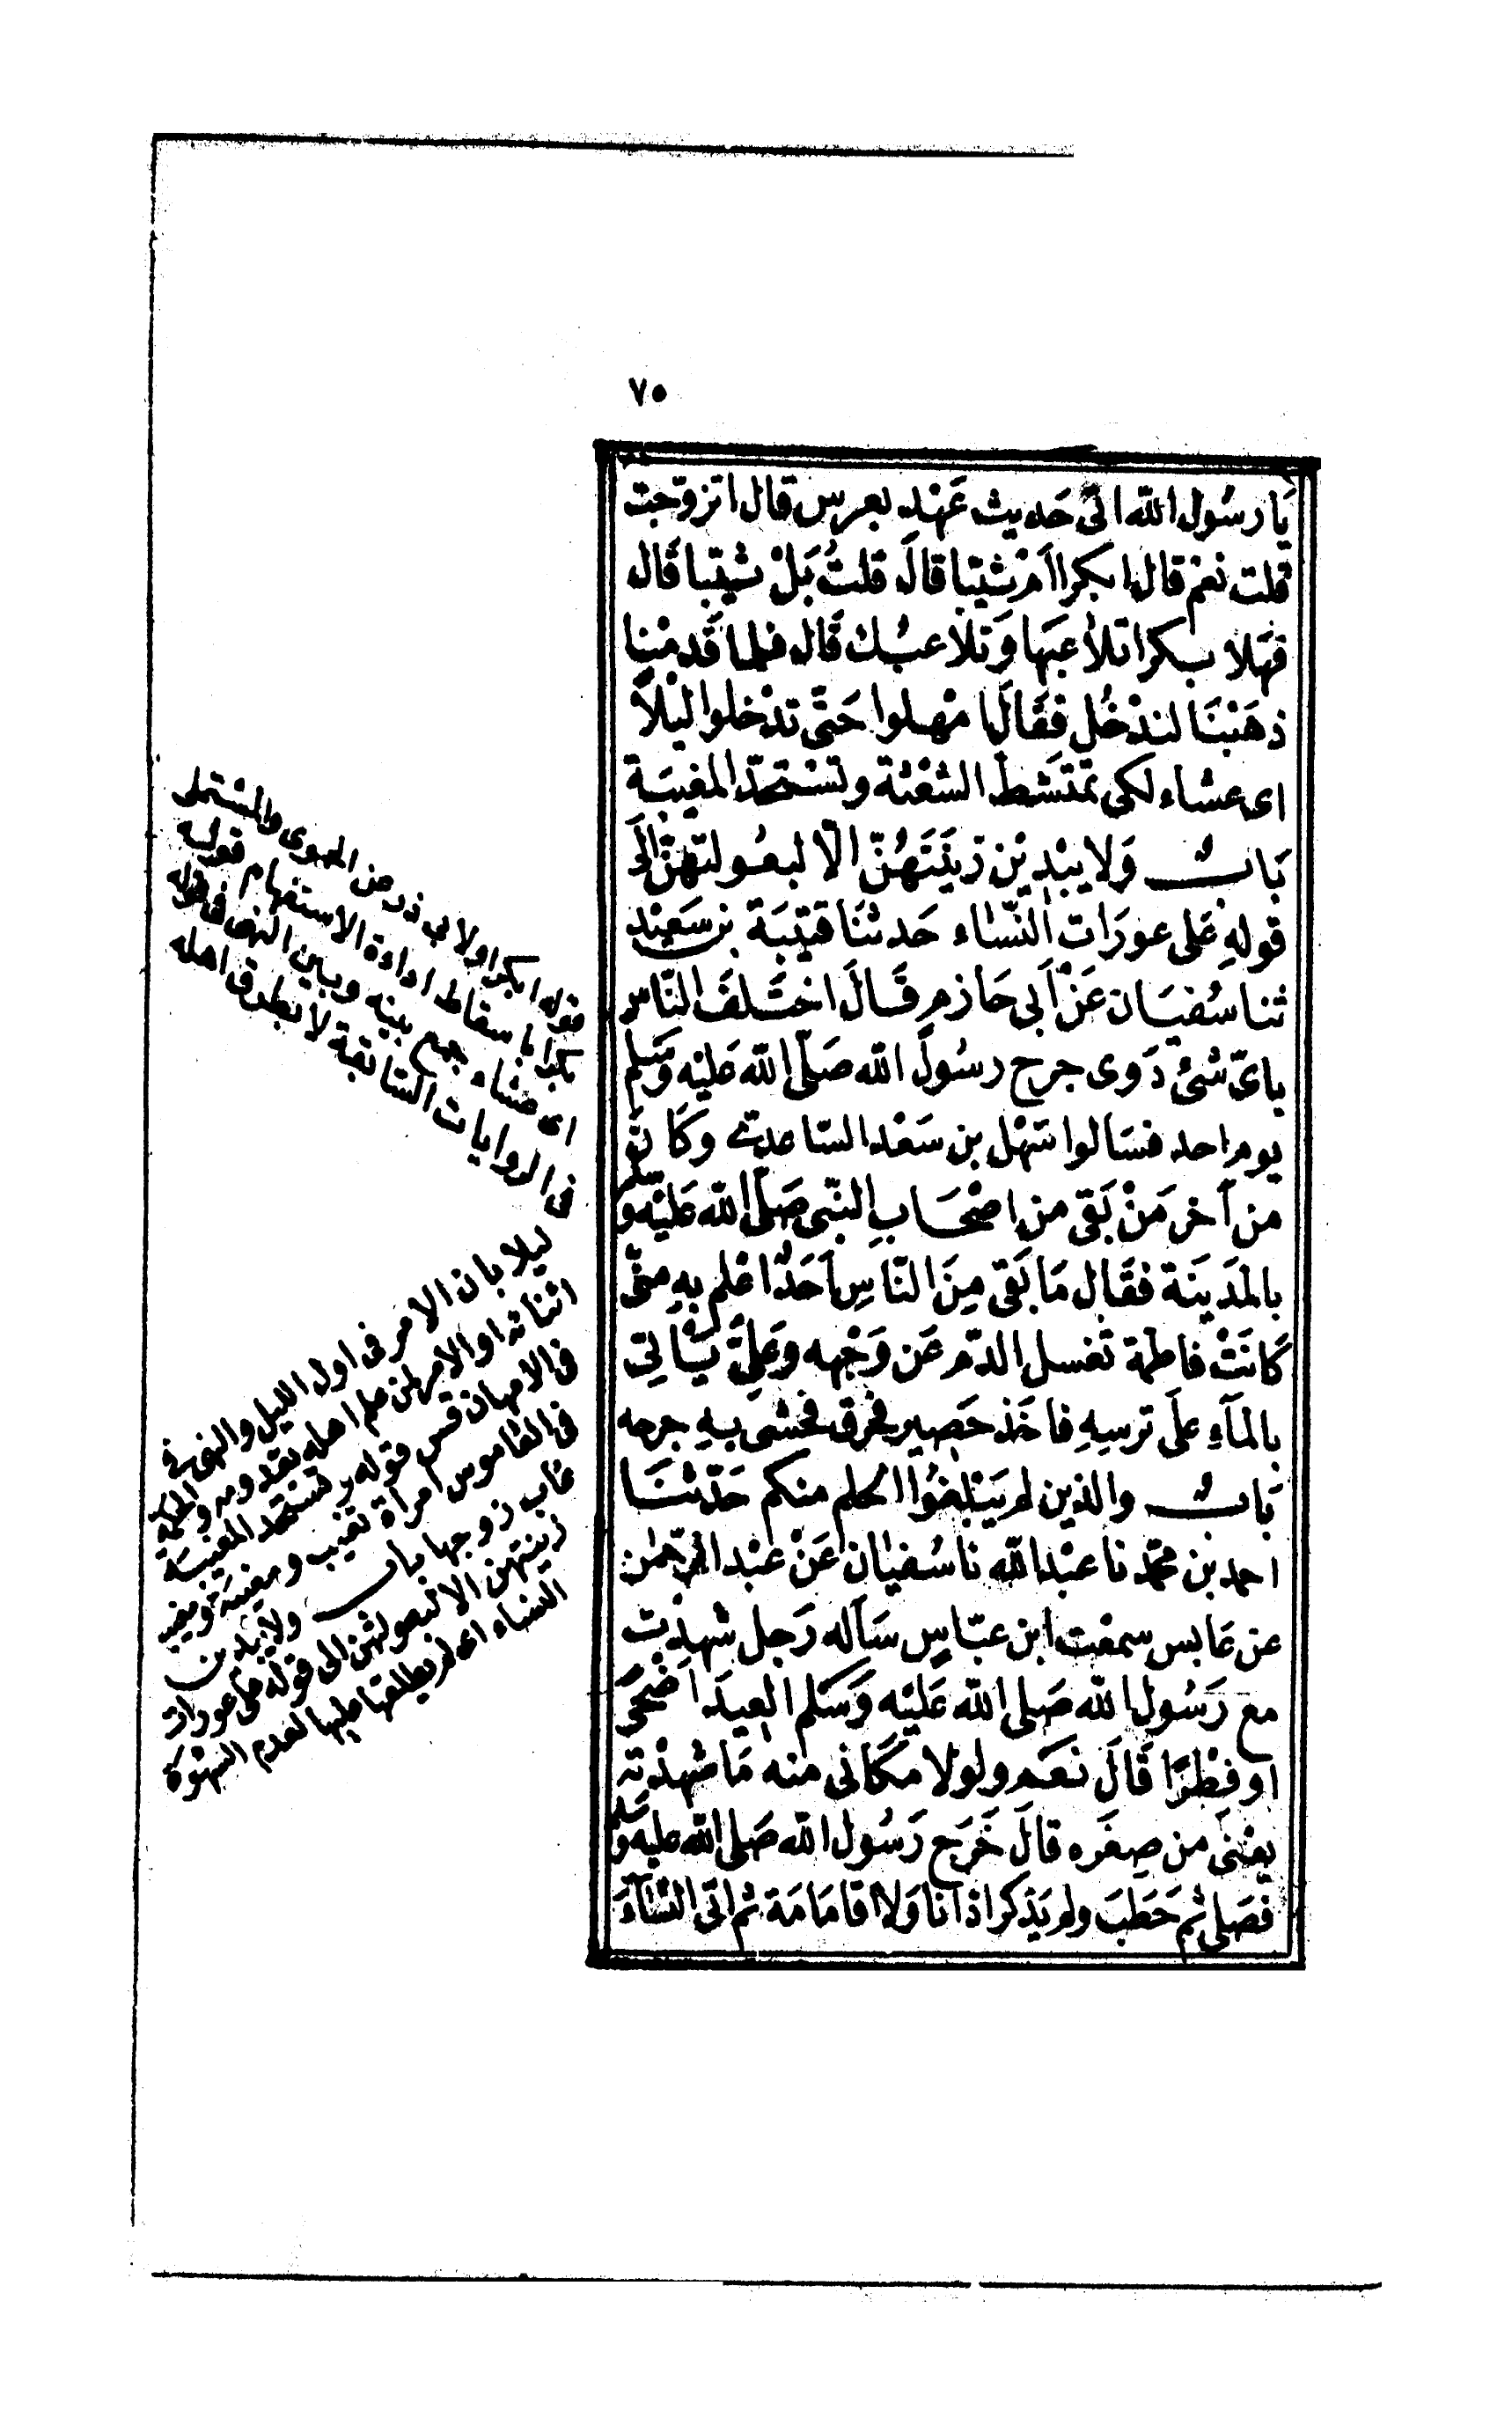 ٧٥
يَا رسُول الله انى حَديث عَهْدٍ بعرس قال اتزوّجت
قلت نعم قال ابكرا اَمْ ثيّبا قالَ قلتُ بَلْ ثيّبا قَال
فهَلا بكرا تلاعبَها وَتلاعبُك قَال فلما قَدمْنا
ذهَبْنَا لندْخُل فقَالَ امْهلوا حَتّى تدْخلوا ليْلاً
اى عشاء لكى تمتَشط الشعْثة وتسْتَحدّ المغيبَة
بَابٌ وَلا يبْدِيْن زينَتَهُنّ الّا لبعُولتهنّ الَى
قولهِ عَلى عورَاتِ النّساء حَدثنَا قتيْبَة بن سَعيْد
ثنا سُفيَان عَنْ اَبى حَازم قَالَ اختَلفَ النّاس
باىّ شئ دَوى جرح رسُولُ الله صَلّى الله عَليْه وَسَلم
يوم احد فسَالوا سَهْل بن سَعْد السّاعدىّ وكَان
من آخر مَنْ بَقى من اصْحَابِ النبّى صَلّى الله عَليْه وسلّم
بالمَدَينَة فقَال مَا بَقى مِنَ النّاسِ اَحَدٌ اعْلم بهِ منّى
كانَتْ فاطمة تغسل الدّم عَن وَجْهه وَعَلىٌّ يَأتى
بالمآءِ علَى ترسِهِ فاخَذ حَصِير فحرق فحشى بهِ جرحه
بَابٌ والذين لم يَبْلغُوا الحلم منكم حَدّثنَا
احمد بن محمّد نا عبْد الله نا سُفيٰان عَنْ عبْد الرّحمٰن
عن عَابس سمعْت ابن عبّاسٍ سَأله رَجل شهدْت
مع رَسُول الله صَلى الله عَليْه وَسَلم العِيدَ اَضْحَى
او فِطْرًا قَالَ نعَم ولولا مكَانى منه مَا شهدْته
يعْنى من صِغَره قالَ خَرَج رَسُول الله صَلى الله عليه وَسَلم
فصَلى ثم خَطبَ ولم يَذكر اذَانا وَلا اقامَة ثم اتى النّسَآءَ
قوله ابكرا ولابى ذر عن الحموى والمستملى
بكرا باسقاط اداءة الاستفهام قوله
اى عشاء جمع بينه وبين النهى
فى الروايات السّابقة لا يطرق اهله
ليلا بان الامر فى اول الليل والنهى فى
اثنائه او الامر لمن علم اهله بقدومه
قس قوله وتستحد المغيبة
فى القاموس امرأة مغيب ومغيبة
غاب زوجها باب ولا يبدين
زينتهن الا لبعولتهن الى قوله على عورات
النساء اى لم يطلعوا عليها لعدم الشهوة